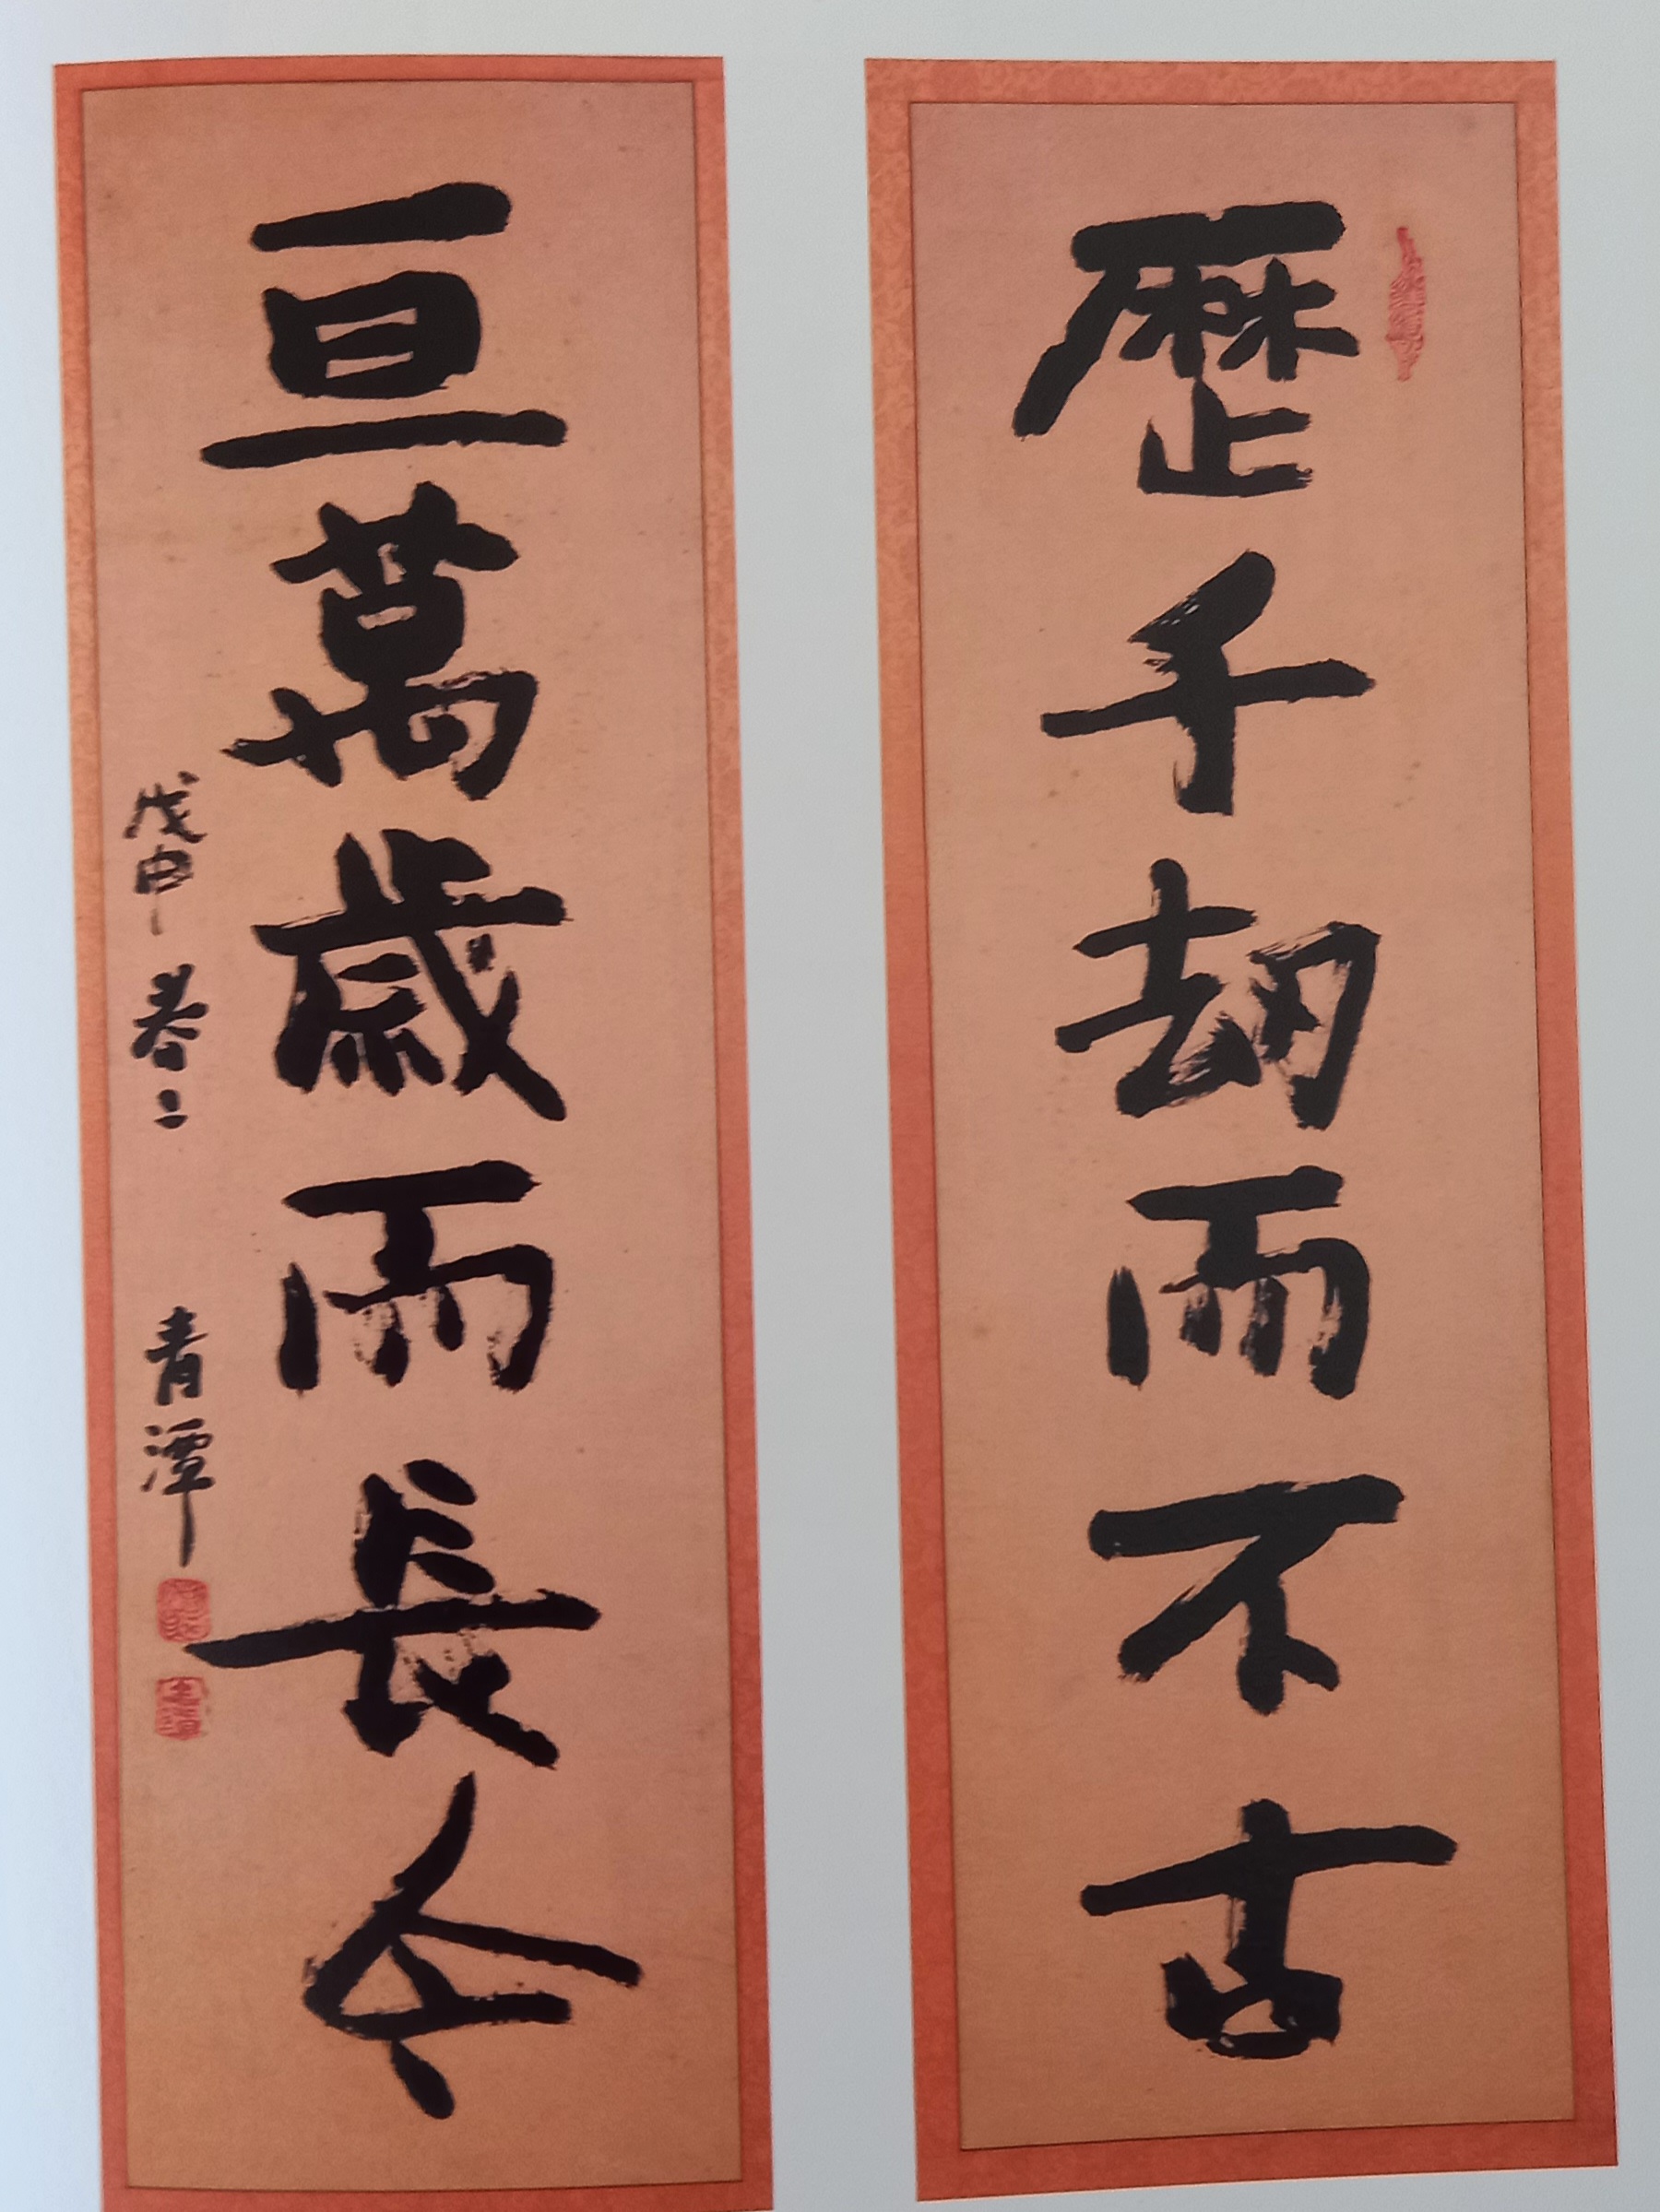 歷千劫而不古
亘萬歲而長今
戊申 春日 青潭